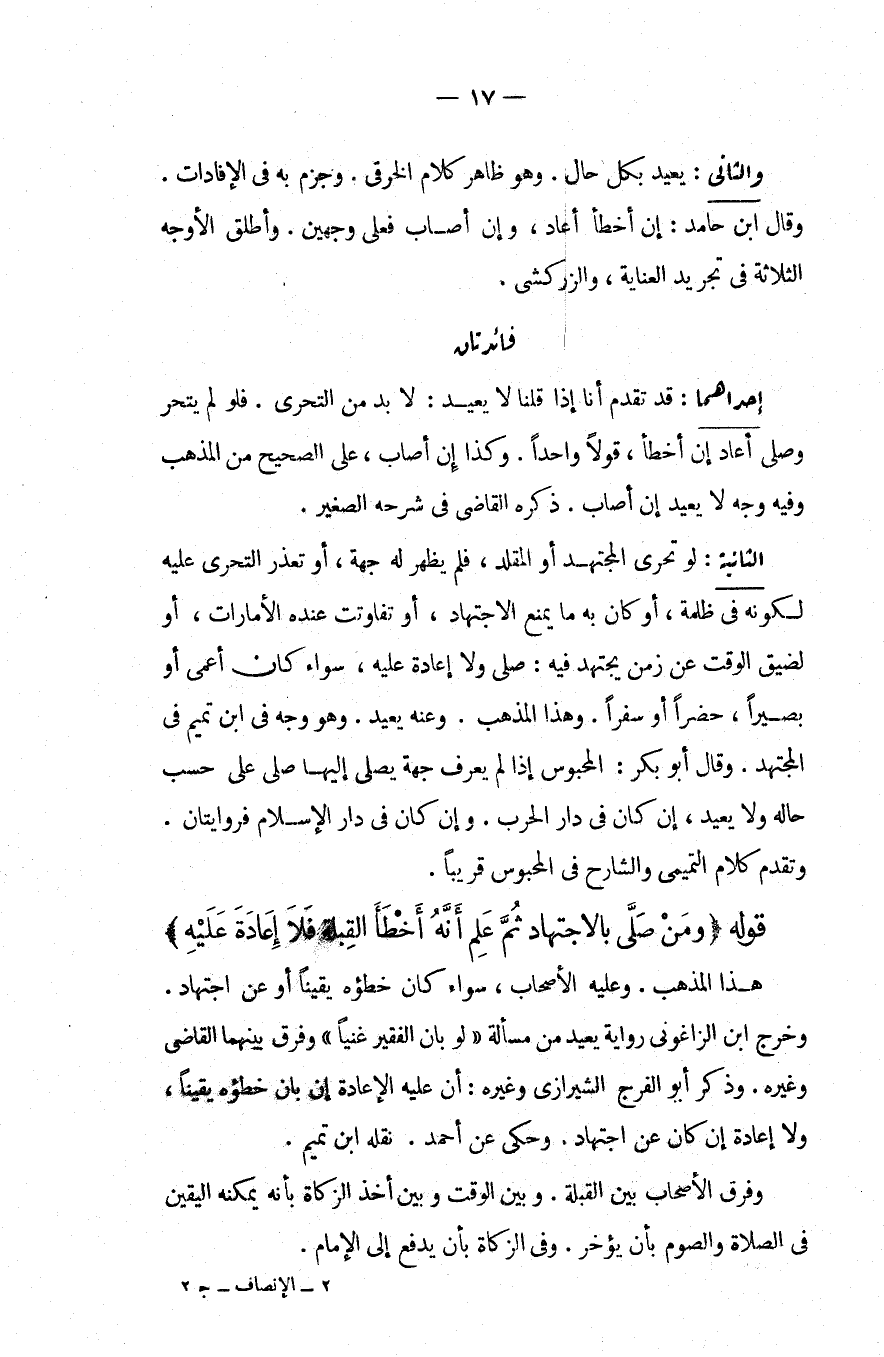 — ١٧ —
والثانى : يعيد بكل حال . وهو ظاهر كلام الخرقى . وجزم به فى الإفادات .
وقال ابن حامد : إن أخطأ أعاد ، وإن أصـاب فعلى وجهين . وأطلق الأوجه
الثلاثة فى تجريد العناية ، والزركشى .
فائدتان
إحداهما : قد تقدم أنا إذا قلنا لا يعيـد : لا بد من التحرى . فلو لم يتحر
وصلى أعاد إن أخطأ ، قولاً واحداً . وكذا إن أصاب ، على الصحيح من المذهب
وفيه وجه لا يعيد إن أصاب . ذكره القاضى فى شرحه الصغير .
الثانية : لو تحرى المجتهـد أو المقلد ، فلم يظهر له جهة ، أو تعذر التحرى عليه
لـكونه فى ظلمة ، أو كان به ما يمنع الاجتهاد ، أو تفاوتت عنده الأمارات ، أو
لضيق الوقت عن زمن يجتهد فيه : صلى ولا إعادة عليه ، سواء كان أعمى أو
بصـيراً ، حضراً أو سفراً . وهذا المذهب . وعنه يعيد . وهو وجه فى ابن تميم فى
المجتهد . وقال أبو بكر : المحبوس إذا لم يعرف جهة يصلى إليهـا صلى على حسب
حاله ولا يعيد ، إن كان فى دار الحرب . وإن كان فى دار الإسـلام فروايتان .
وتقدم كلام التميمى والشارح فى المحبوس قريباً .
قوله ﴿ ومَنْ صَلَّى بالاجتهاد ثُمَّ عَلِم أَنَّهُ أَخْطَأَ القِبلة فَلاَ إِعَادَةَ عَلَيْهِ ﴾
هـذا المذهب . وعليه الأصحاب ، سواء كان خطؤه يقيناً أو عن اجتهاد .
وخرج ابن الزاغونى رواية يعيد من مسألة « لو بان الفقير غنياً » وفرق بينهما القاضى
وغيره . وذكر أبو الفرج الشيرازى وغيره : أن عليه الإعادة إن بان خطؤه يقيناً ،
ولا إعادة إن كان عن اجتهاد . وحكى عن أحمد . نقله ابن تميم .
وفرق الأصحاب بين القبلة . وبين الوقت وبين أخذ الزكاة بأنه يمكنه اليقين
فى الصلاة والصوم بأن يؤخر . وفى الزكاة بأن يدفع إلى الإمام .
٢ ـ الإنصاف ـ ج ٢